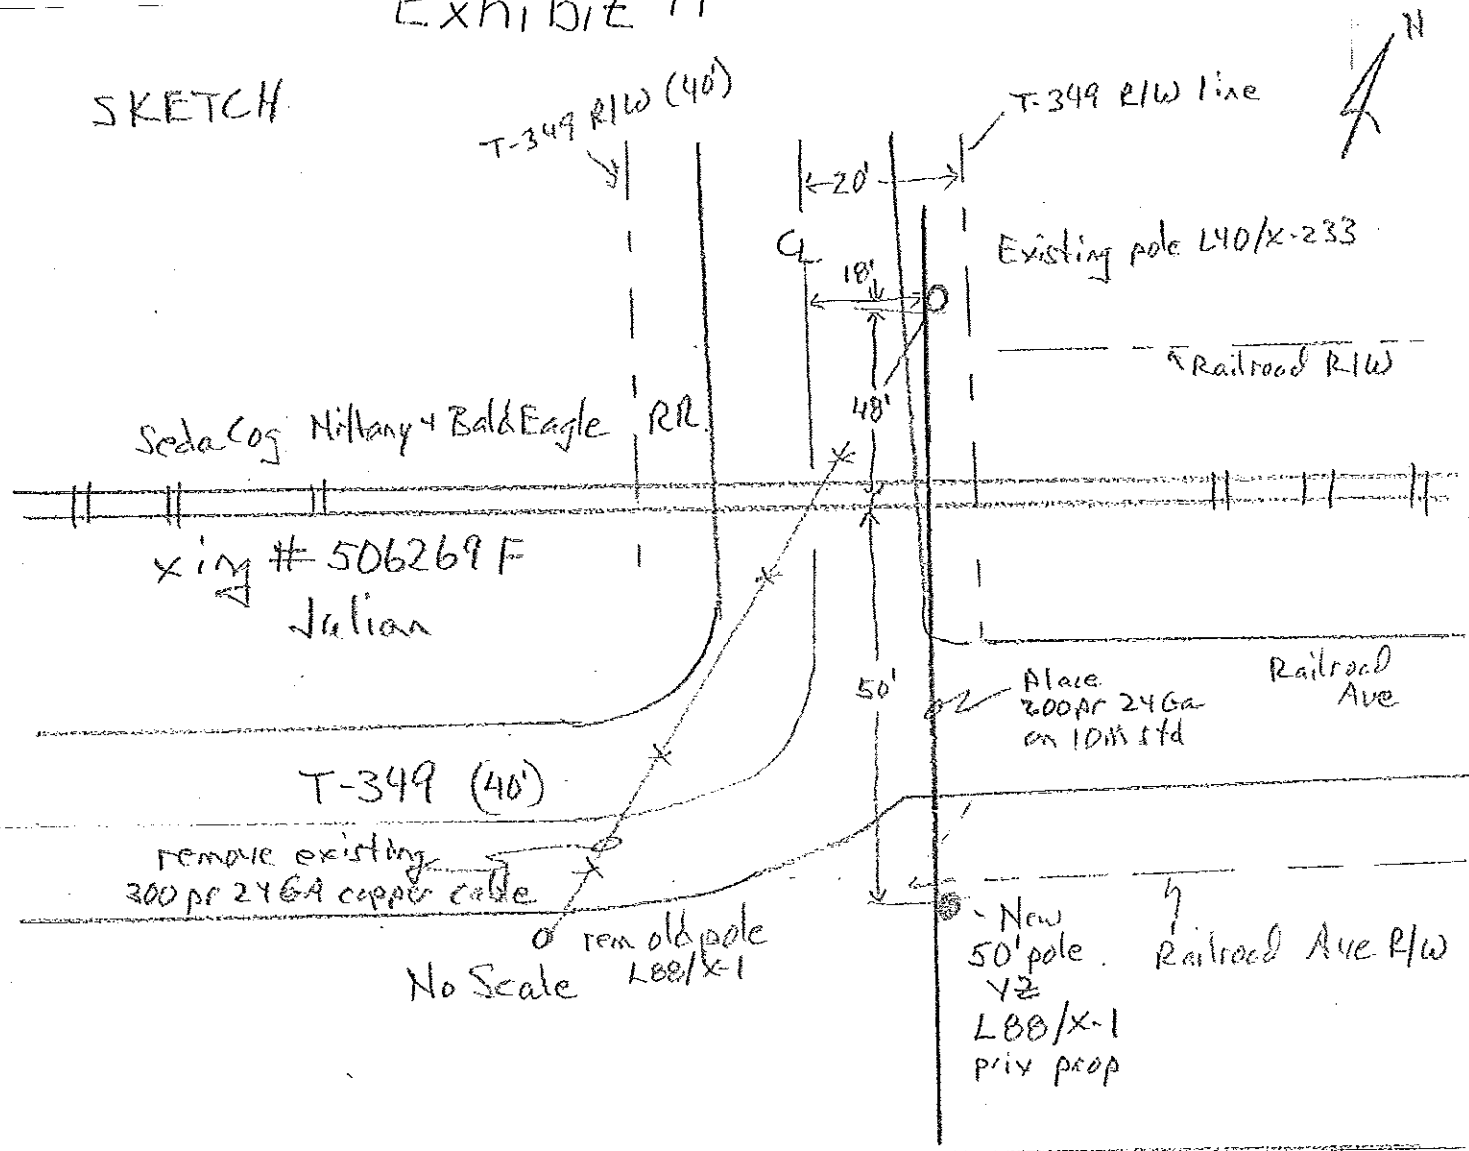 Exhibit A
SKETCH
T-349 R/W (40')
T-349 R/W line
N
20'
CL
18'
Existing pole L40/X-233
Railroad R/W
48'
SedaCog Nittany + Bald Eagle RR.
xing # 506269F
Julian
50'
Place
200pr 24Ga
on 10M std
Railroad
Ave
T-349 (40')
remove existing
300 pr 24GA copper cable
rem old pole
L88/X-1
No Scale
- New
50' pole.
L88/X-1
priv prop
Railroad Ave R/W